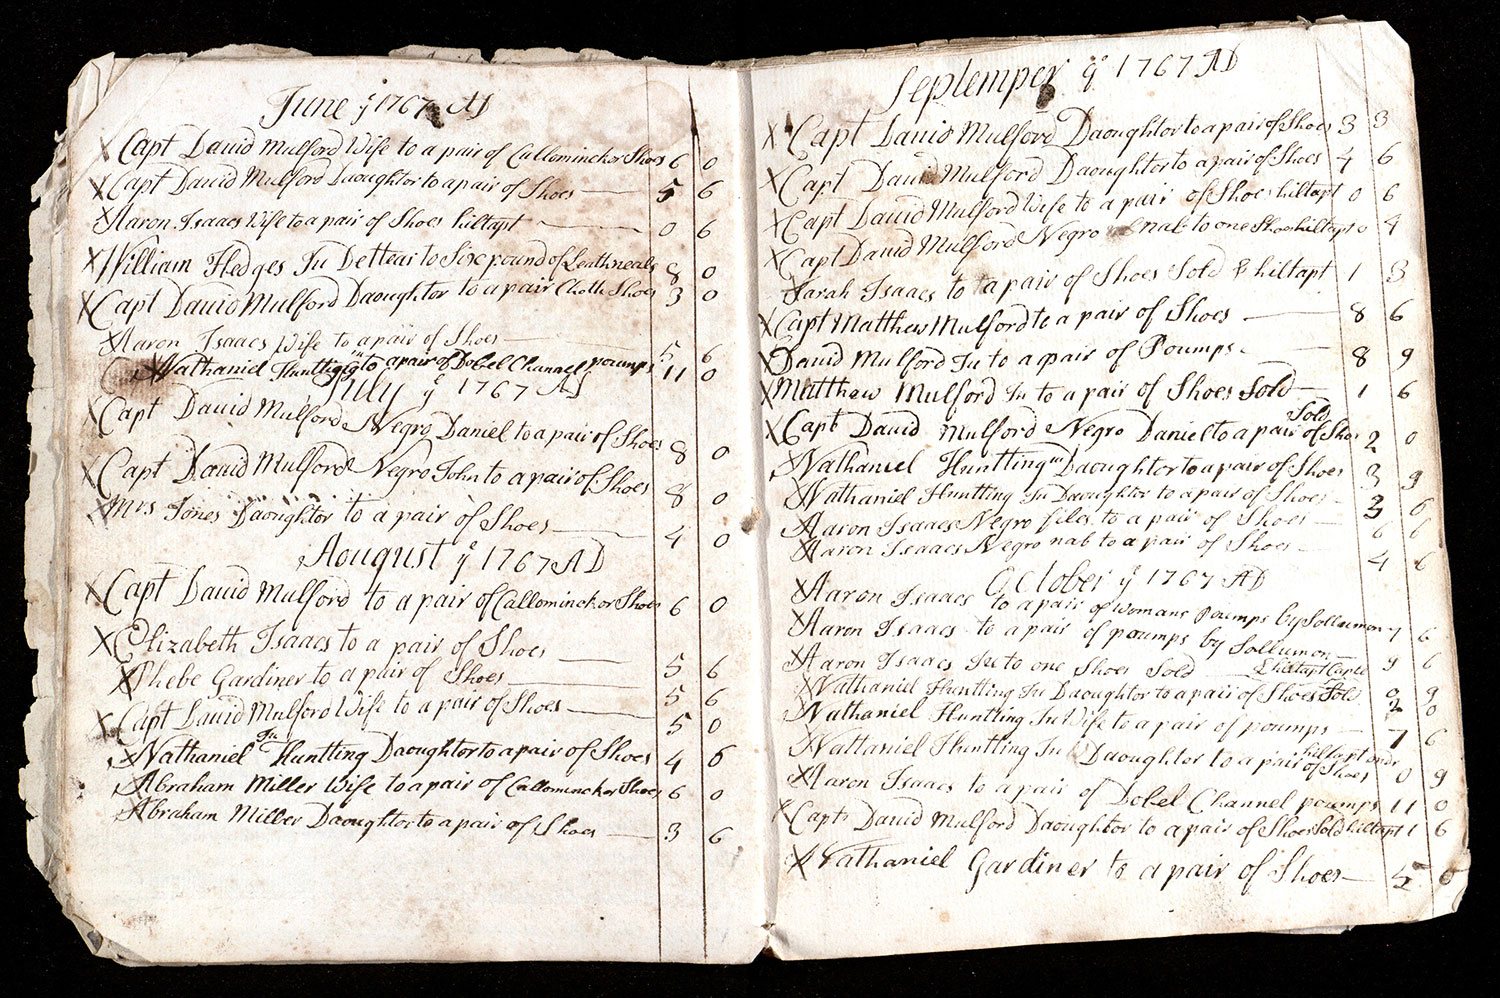 June ye 1767 AD
X Capt Dauid Mulford Wife to a pair of Callominckor Shoes 6 0
X Capt Dauid Mulford Daoughtor to a pair of Shoes 5 6
X Aaron Isaacs Wife to a pair of Shoes hiltapt 0 6
X William Hedges Ju Detter to Six pound of Leath 8 0
X Capt Dauid Mulford Daoughtor to a pair Cloth Shoes 3 0
X Aaron Isaacs Wife to a pair of Shoes 5 6
X Nathaniel Huntting to a pair of Dobel Channel poumps 11 0
July ye 1767 AD
X Capt Dauid Mulford Negro Daniel to a pair of Shoes 8 0
X Capt Dauid Mulford Negro John to a pair of Shoes 8 0
X Mrs Jones Daoughtor to a pair of Shoes 4 0
Aougust ye 1767 AD
X Capt Dauid Mulford to a pair of Callominckor Shoes 6 0
X Elizabeth Isaacs to a pair of Shoes 5 6
X Phebe Gardiner to a pair of Shoes 5 6
X Capt Dauid Mulford Wife to a pair of Shoes 5 0
X Nathaniel Ju Huntting Daoughtor to a pair of Shoes 4 6
X Abraham Miller Wife to a pair of Callominckor Shoes 6 0
X Abraham Miller Daoughtor to a pair of Shoes 3 6
Septemper ye 1767 AD
X Capt Dauid Mulford Daoughtor to a pair of Shoes 3 3
X Capt Dauid Mulford Daoughtor to a pair of Shoes 4 6
X Capt Dauid Mulford Wife to a pair of Shoes hiltapt 0 6
X Capt Dauid Mulford Negro nab to one Shoe hiltapt 0 4
Sarah Isaacs to a pair of Shoes Sold & hiltapt 1 3
X Capt Matthew Mulford to a pair of Shoes 8 6
X Dauid Mulford Ju to a pair of Poumps 8 9
X Matthew Mulford Ju to a pair of Shoes Sold 1 6
X Capt Dauid Mulford Negro Daniel to a pair of Shoes Sold 2 0
X Nathaniel Huntting Daoughtor to a pair of Shoes 3 9
X Nathaniel Huntting Ju Daoughtor to a pair of Shoes 3 6
X Aaron Isaacs Negro files to a pair of Shoes 6 6
X Aaron Isaacs Negro nab to a pair of Shoes 4 6
October ye 1767 AD
X Aaron Isaacs to a pair of womans poumps by Sollumon 7 6
X Aaron Isaacs to a pair of poumps by Sollumon 9 6
X Aaron Isaacs Ju to one Shoes Sold & hiltapt 0 9
X Nathaniel Huntting Ju Daoughtor to a pair of Shoes Sold 2 0
X Nathaniel Huntting Ju Wife to a pair of poumps 7 6
X Nattaniel Huntting Ju Daoughtor to a pair of Shoes hiltapt 0 9
X Aaron Isaacs to a pair of Dobel Channel poumps 11 0
X Capt Dauid Mulford Daoughtor to a pair of Shoes Sold hiltapt 1 6
X Nathaniel Gardiner to a pair of Shoes 5 6